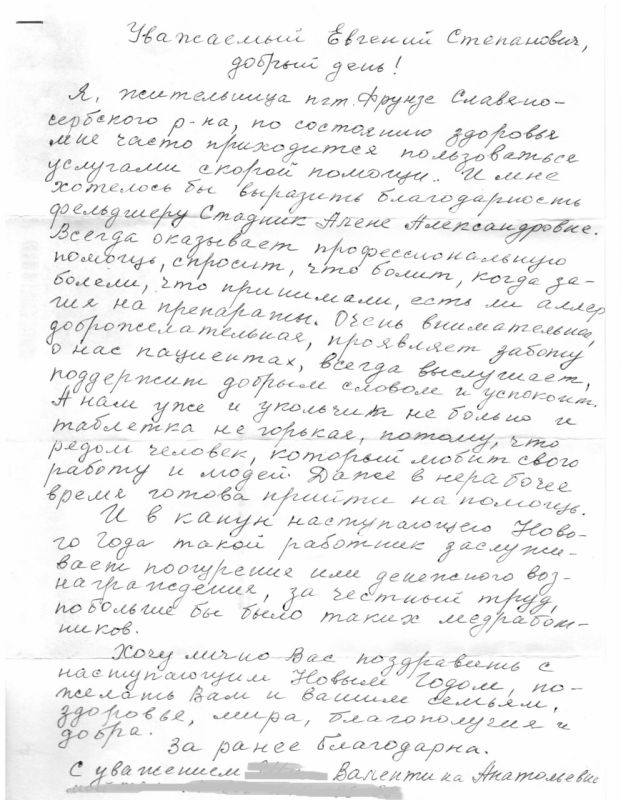 Уважаемый Евгений Степанович,
добрый день!
Я, жительница пгт. Фрунзе Славяно-
сербского р-на, по состоянию здоровья
мне часто приходится пользоваться
услугами скорой помощи. И мне
хотелось бы выразить благодарность
фельдшеру Стадник Алене Александровне.
Всегда оказывает профессиональную
помощь, спросит, что болит, когда за-
болели, что принимали, есть ли аллер
гия на препараты. Очень внимательная,
доброжелательная, проявляет заботу
о нас пациентах, всегда выслушает,
поддержит добрым словом и успокоит.
А нам уже и укольчик не больно и
таблетка не горькая, потому, что
рядом человек, который любит свою
работу и людей. Даже в нерабочее
время готова прийти на помощь.
И в канун наступающего Ново-
го Года такой работник заслужи-
вает поощрение или денежного воз-
награждение, за честный труд,
побольше бы было таких медработ-
ников.
Хочу лично Вас поздравить с
наступающим Новым Годом, по-
желать Вам и вашим семьям,
здоровье, мира, благополучия и
добра.
За ранее благодарна.
С уважением Валентина Анатольевна